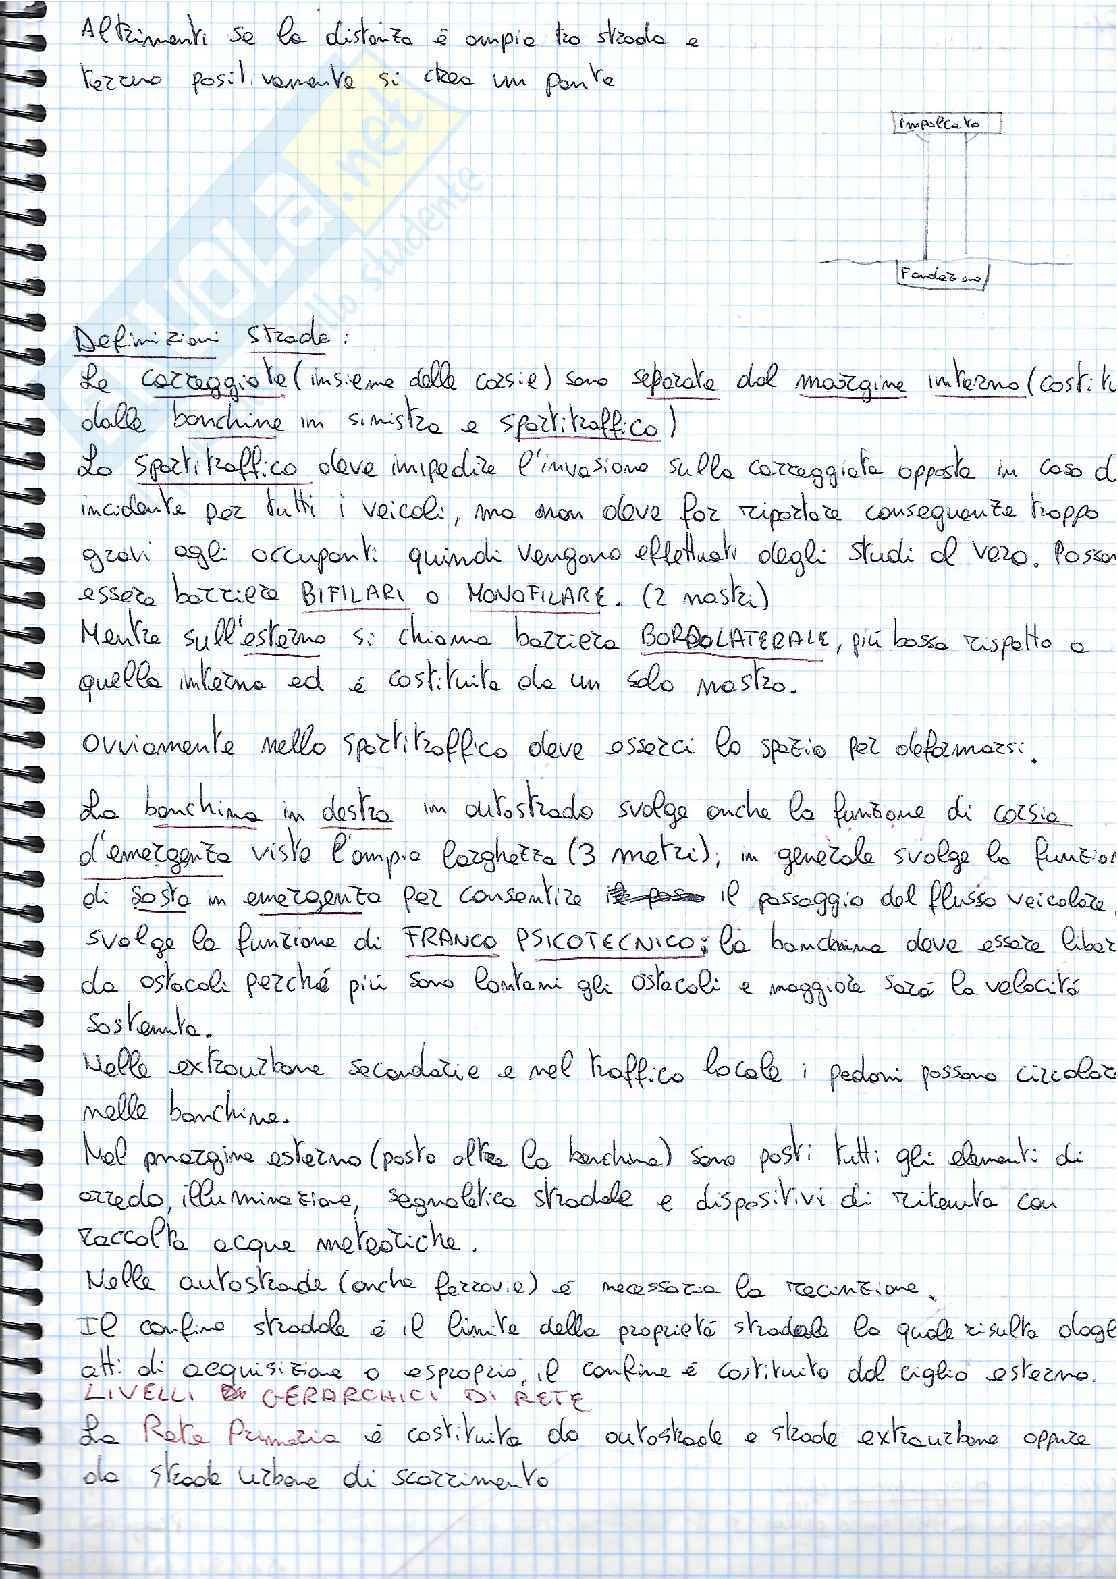 Altrimenti se la distanza é ampia tra strada e
terreno positivamente si crea un ponte
impalcato
Fondazione
Definizioni Strade:
Le carreggiate (insieme delle corsie) sono separate dal margine interno (costitu
dalle banchine in sinistra e spartitraffico)
Lo spartitraffico deve impedire l'invasione sulla carreggiata opposta in caso d
incidente per tutti i veicoli, ma non deve far riportare conseguenze troppo
gravi agli occupanti quindi vengono effettuati degli studi al vero. Posson
essere barriere BIFILARI o MONOFILARE. (2 nastri)
Mentre sull'esterno si chiama barriera BORDOLATERALE, più bassa rispetto a
quella interna ed é costituita da un solo nastro.
Ovviamente nello spartitraffico deve esserci lo spazio per deformarsi.
La banchina in destra in autostrada svolge anche la funzione di corsia
d'emergenza vista l'ampia larghezza (3 metri); in generale svolge la funzion
di sosta in emergenza per consentire il passaggio del flusso veicolare,
svolge la funzione di FRANCO PSICOTECNICO; la banchina deve essere liber
da ostacoli perché più sono lontani gli ostacoli e maggiore sará la velocitá
sostenuta.
Nelle extraurbane secondarie e nel traffico locale i pedoni possono circolar
nelle banchine.
Nel margine esterno (posto oltre la banchina) sono posti tutti gli elementi di
arredo, illuminazione, segnaletica stradale e dispositivi di ritenuta con
raccolta acque meteoriche.
Nelle autostrade (anche ferrovie) é necessaria la recinzione.
Il confine stradale é il limite della proprietá stradale la quale risulta dagl
atti di acquisizione o esproprio, il confine é costituito dal ciglio esterno.
LIVELLI GERARCHICI DI RETE
La Rete Primaria é costituita da autostrade e strade extraurbane oppure
da strade urbane di scorrimento